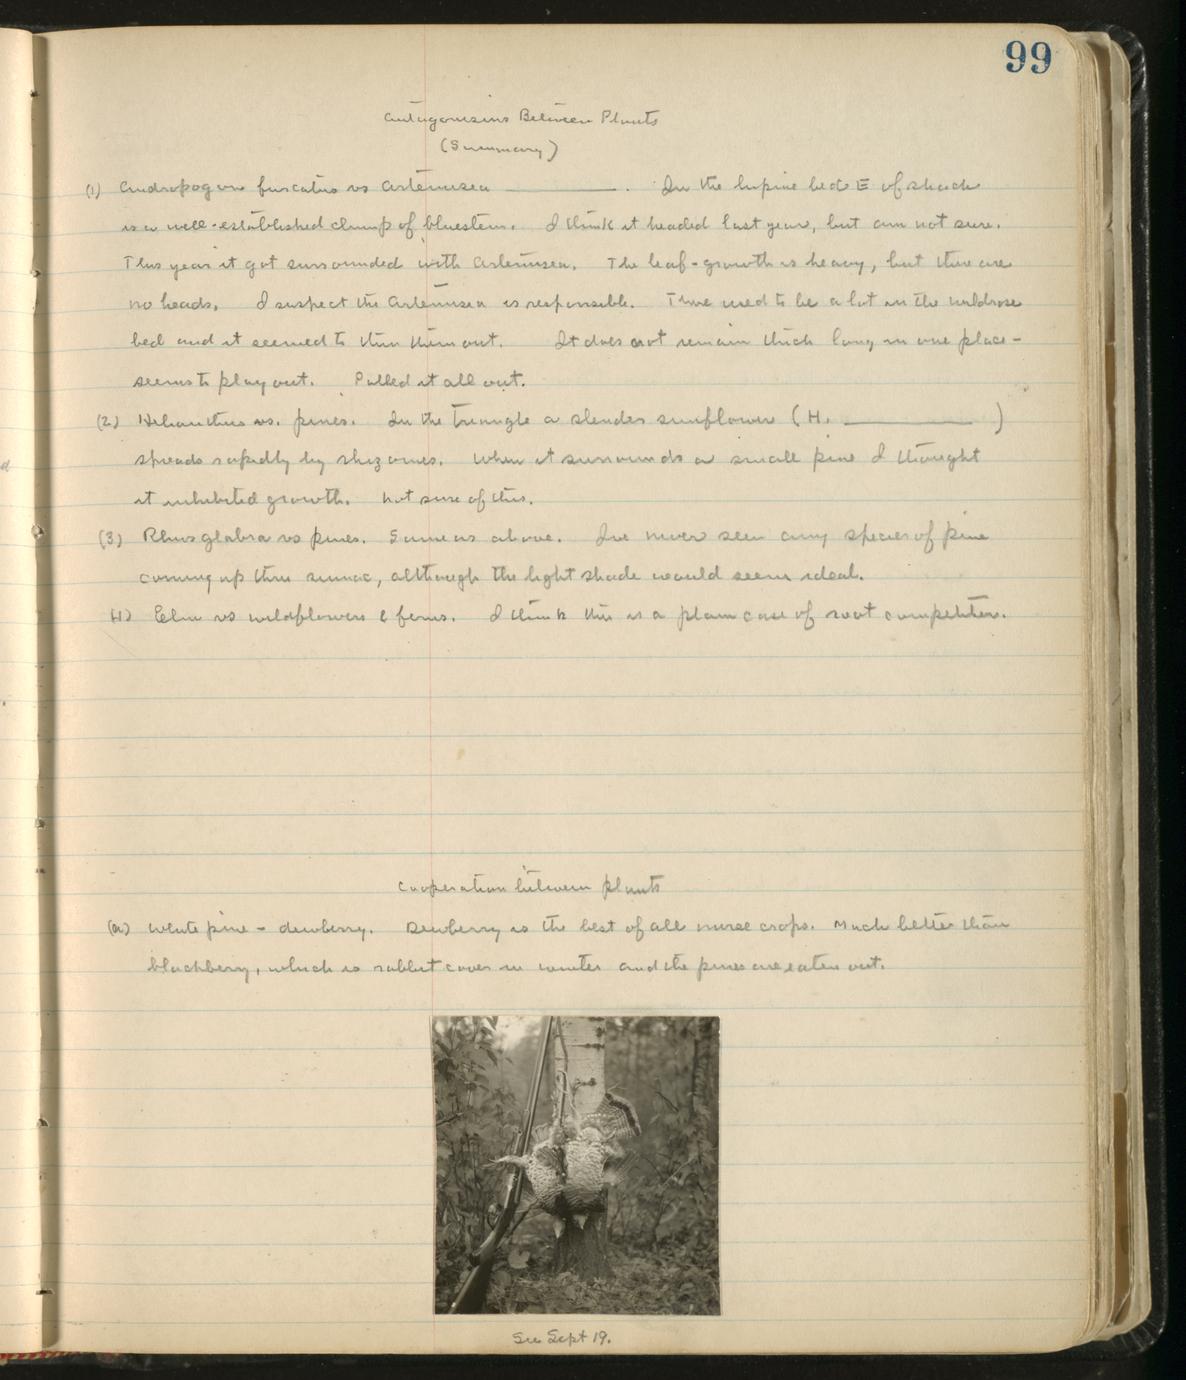 99
Antagonisms Between Plants
(Summary)
(1) Andropogon furcatus vs Artemisea ________. In the lupine bed E of shack
is a well-established clump of bluestem. I think it headed last year, but am not sure.
This year it got surrounded with Artemisea. The leaf-growth is heavy, but there are
no heads. I suspect the Artemisea is responsible. There used to be a lot in the wildrose
bed and it seemed to thin them out. It does not remain thick long in one place -
seems to play out. Pulled it all out.
(2) Helianthus vs. pines. In the triangle a slender sunflower (H. ________ )
spreads rapidly by rhizomes. When it surrounds a small pine I thought
it inhibited growth. Not sure of this.
(3) Rhus glabra vs pines. Same as above. I've never seen any species of pine
coming up thru sumac, although the light shade would seem ideal.
(4) Elm vs wildflowers & ferns. I think this is a plain case of root competition.
Cooperation between plants
(a) White pine - dewberry. Dewberry is the best of all nurse crops. Much better than
blackberry, which is rabbit cover in winter and the pines are eaten out.
See Sept 19.